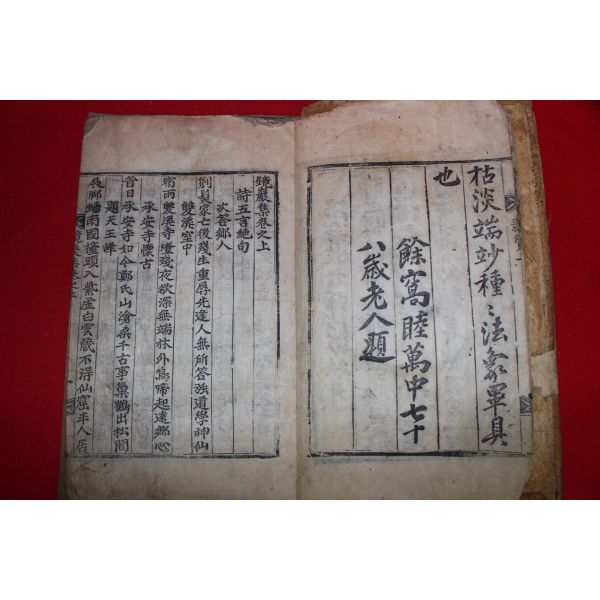 枯淡端竗種〻法象畢具
也
餘窩睦萬中七十
八歲老人題
鏡巖集卷之上
詩五言絶句
次答鄉人
削髮家亡後殘生重辱先逢人無所答強道學神仙
雙溪室中
宿雨雙溪寺燈殘夜欲深無端林外鳥啼起遠鄉心
永安寺懷古
昔日永安寺如今鄭氏山滄桑千古事巢鶴出松間
題天王峰
長脚蟠兩國擡頭入紫虛白雲藏不得仙窟半人居